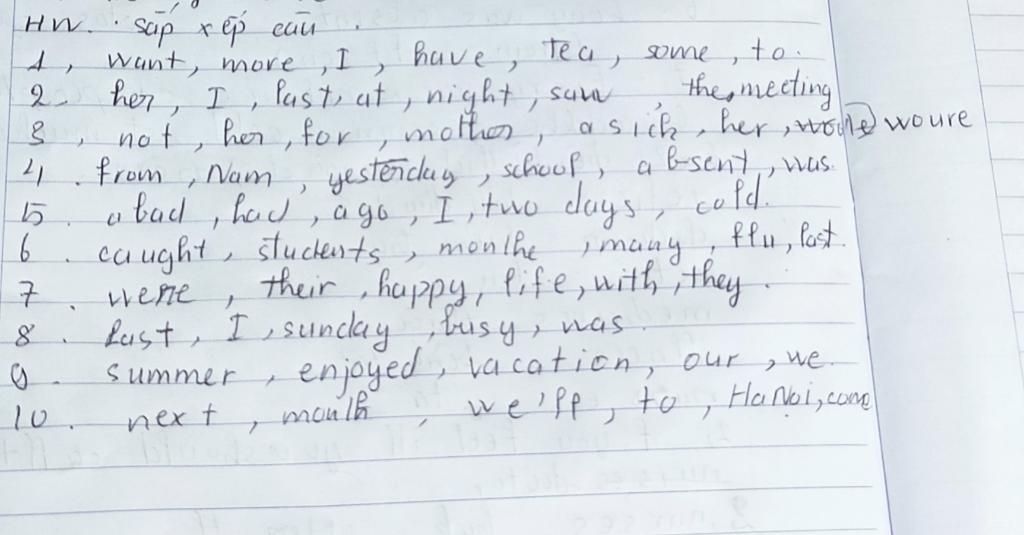 HW. sắp xếp câu.
1, want, more, I, have, tea, some, to.
2. her, I, last, at, night, saw, the, meeting
3, not, her, for, mother, a sick, her, woure
4. from, Nam, yesterday, school, absent, was.
5. a bad, had, ago, I, two days, cold.
6. caught, students, monthe, many, flu, last.
7. were, their, happy, life, with, they.
8. last, I, sunday, busy, was.
9. summer, enjoyed, vacation, our, we.
10. next, month, we'll, to, HaNoi, come